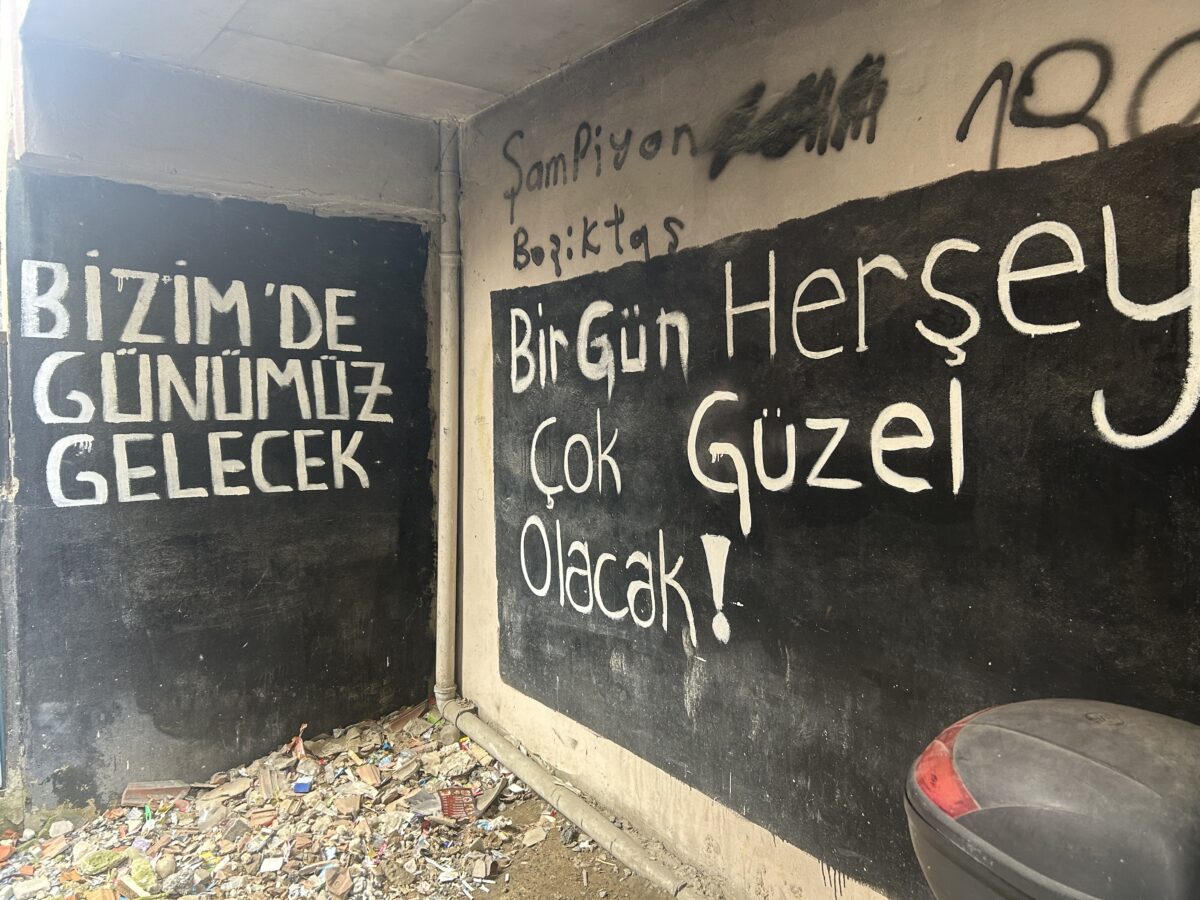 BİZİM'DE
GÜNÜMÜZ
GELECEK
Şampiyon
Boşiktaş
Bir Gün Herşey
Çok Güzel
Olacak!